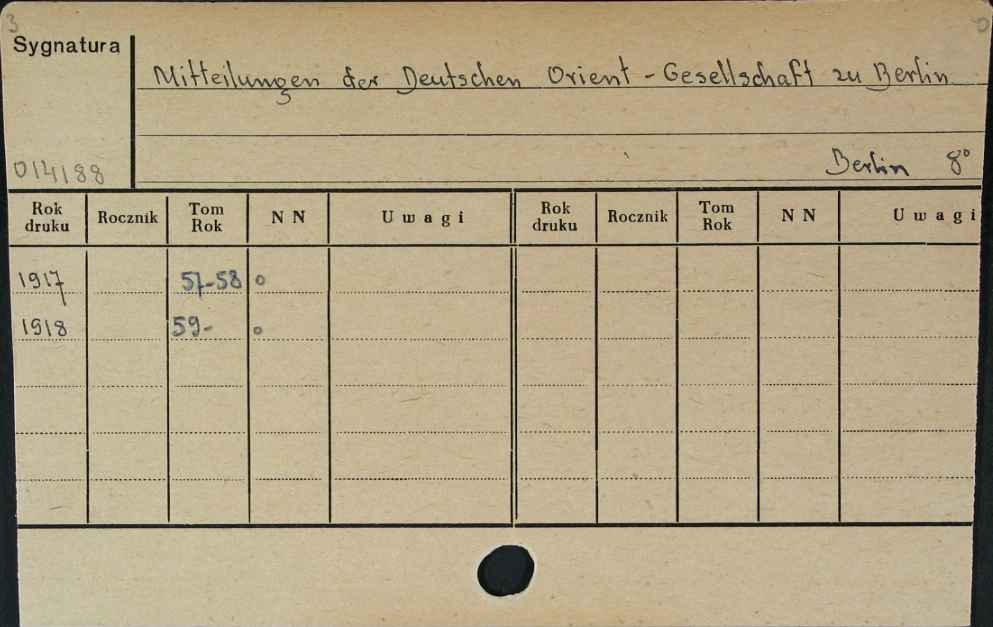 3
Sygnatura
Mitteilungen der Deutschen Orient - Gesellschaft zu Berlin
Berlin 8°
014188
Rok druku Rocznik Tom Rok NN Uwagi Rok druku Rocznik Tom Rok NN Uwagi
1917 57-58 o
1918 59- o